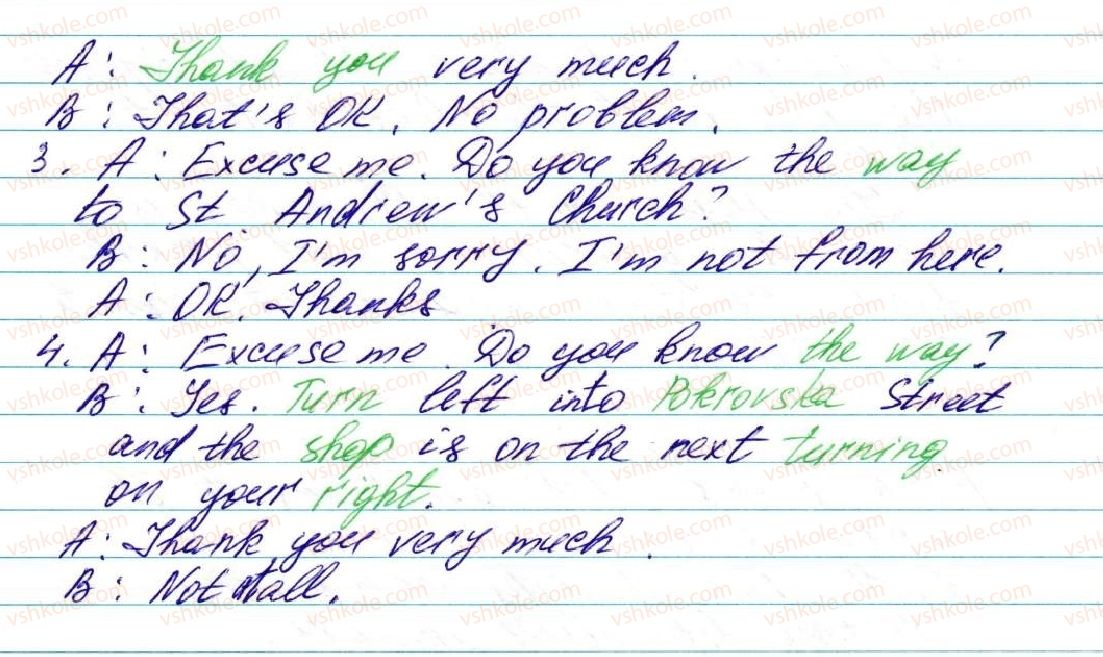 A: Thank you very much.
B: That's OK. No problem.
3. A: Excuse me. Do you know the way
to St Andrew's Church?
B: No, I'm sorry. I'm not from here.
A: OK. Thanks
4. A: Excuse me. Do you know the way?
B: Yes. Turn left into Pokrovska Street
and the shop is on the next turning
on your right.
A: Thank you very much.
B: Not at all.